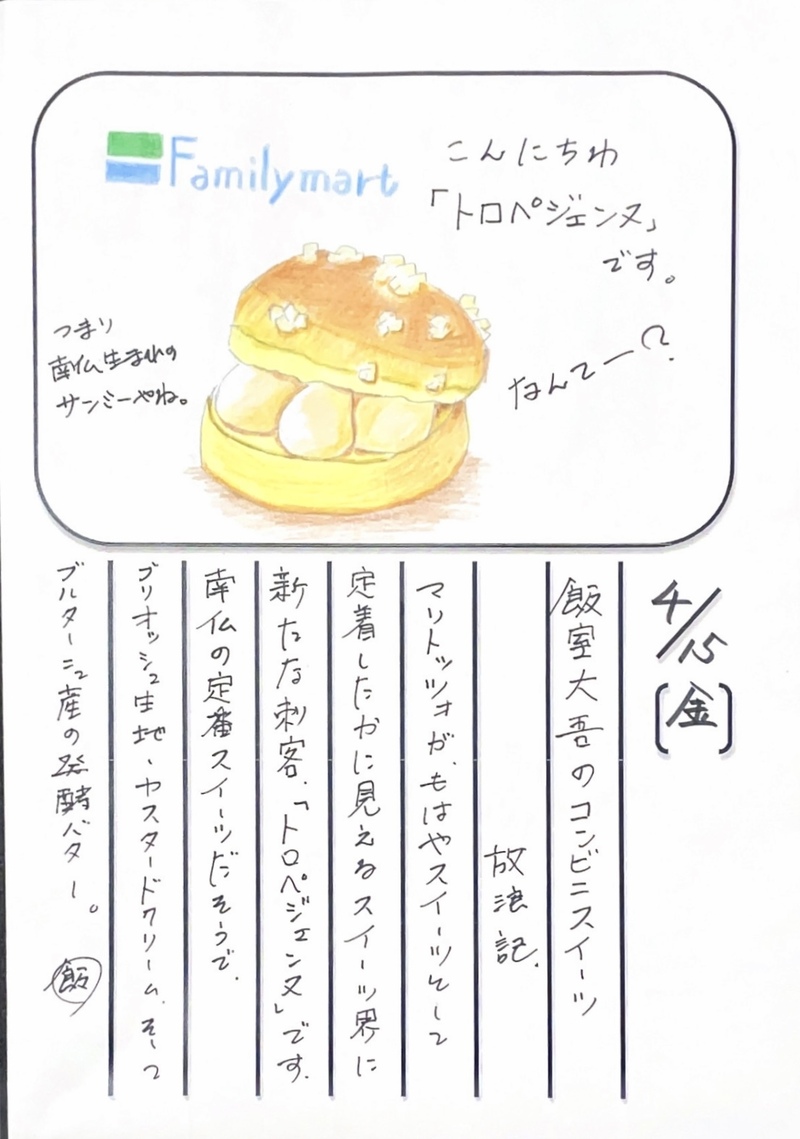 Familymart
こんにちわ
「トロペジェンヌ」
です。
なんてー?
つまり
南仏生まれの
サンミーやね。
4/15
[金]
飯室大吾のコンビニスイーツ
放浪記.
マリトッツォが、もはやスイーツとして
定着したかに見えるスイーツ界に
新たな刺客、「トロペジェンヌ」です.
南仏の定番スイーツだそうで.
ブリオッシュ生地、カスタードクリーム、そして
ブルターニュ産の発酵バター。
飯